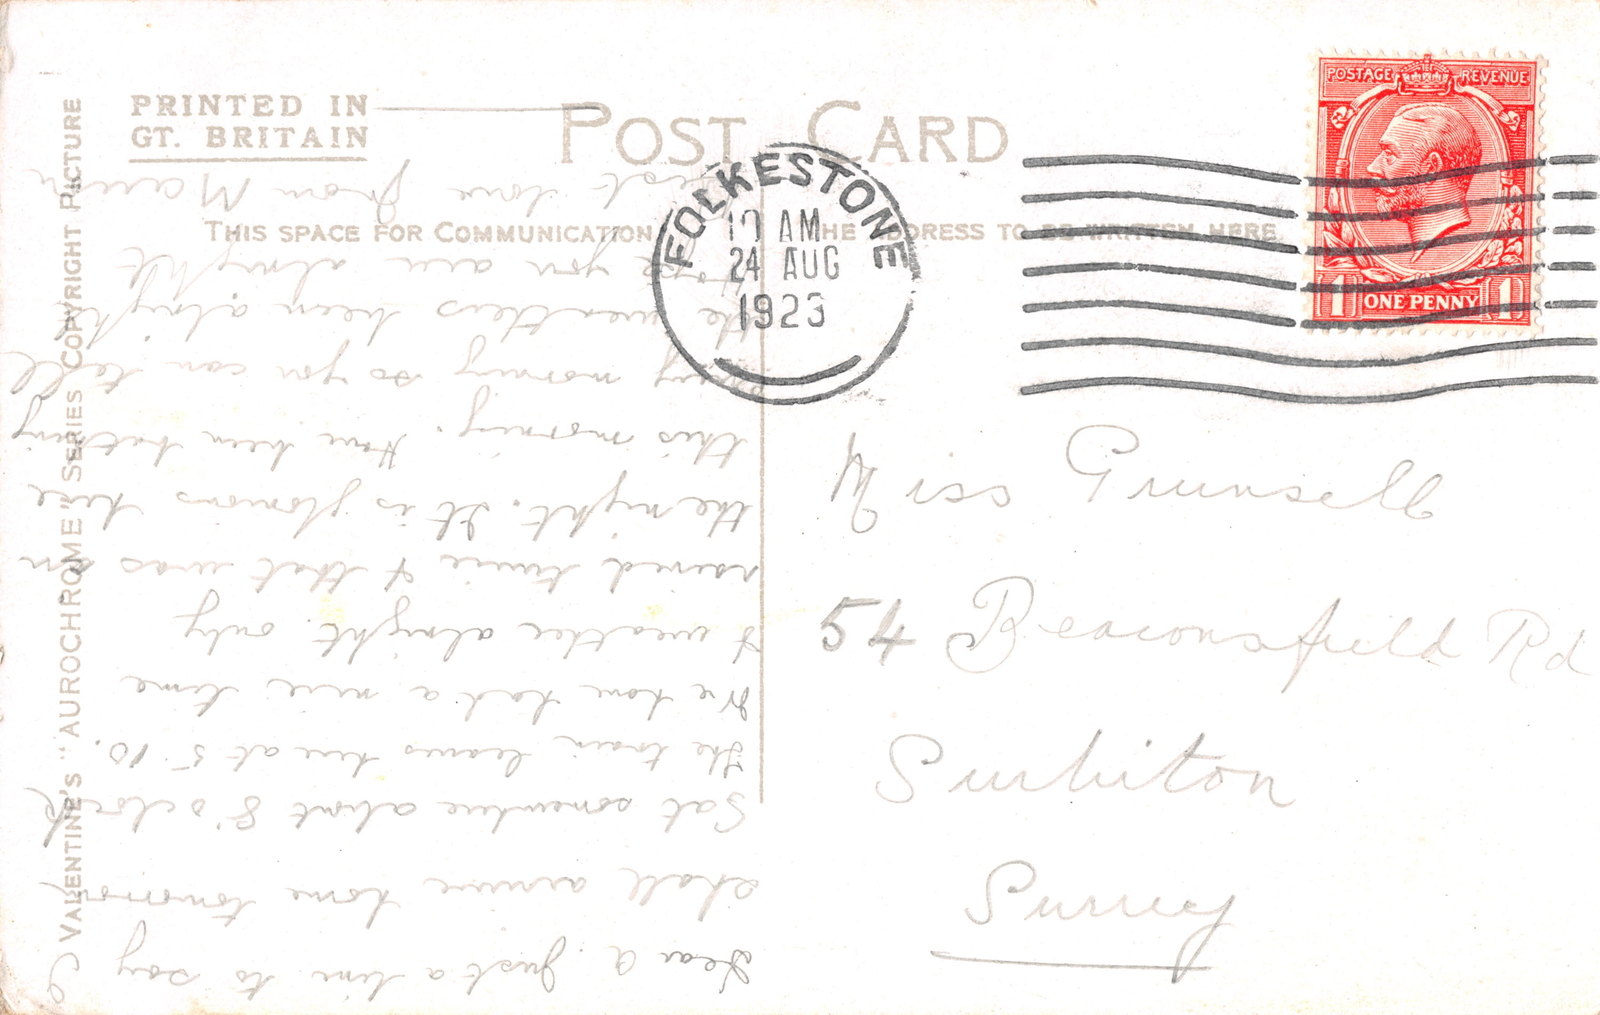 PRINTED IN
GT. BRITAIN
POST CARD
THIS SPACE FOR COMMUNICATION
THE ADDRESS TO BE WRITTEN HERE.
VALENTINE'S "AUROCHROME" SERIES COPYRIGHT PICTURE
FOLKESTONE
10 AM
24 AUG
1923
POSTAGE REVENUE
1 ONE PENNY 1
Miss Grunsell
54 Beaconsfield Rd
Surbiton
Surrey
Dear A. Just a line to say I
shall arrive home tomorrow
Sat somewhere about 8 o'clock
the train leaves here at 5.10.
We have had a nice time
& weather alright only
rained twice & that was in
the night. It is glorious here
this morning. Have been bathing
every morning so you can tell
the weathers been alright
Hope you are alright
Best love from